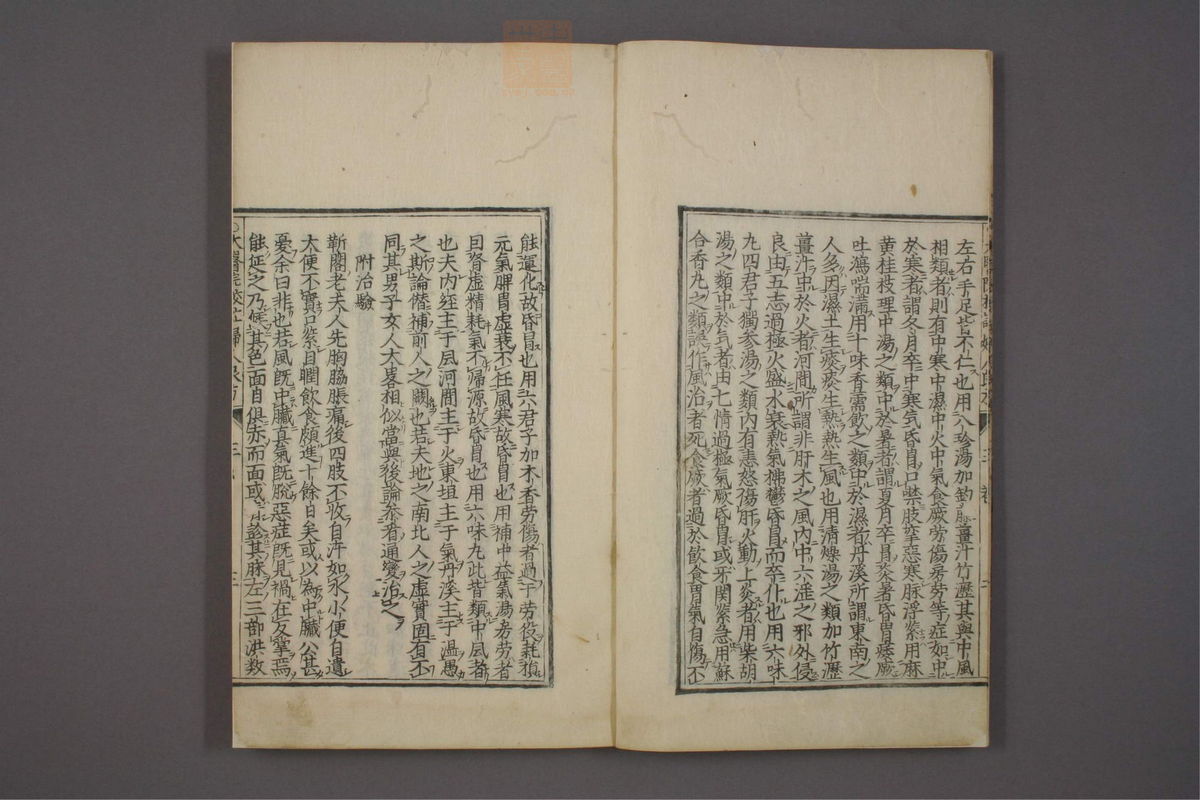 左右手足皆不仁也用八珍湯加鈎藤薑汁竹瀝其與中風
相類者則有中寒中濕中火中氣食厥労傷房労等症如中
於寒者謂冬月卒中寒気昏冒口噤肢攣惡寒脉浮緊用麻
黄桂枝理中湯之類中於暑者謂夏月卒冒炎暑昏冒痿厥
吐瀉喘滿用十味香薷飲之類中於濕者丹溪所謂東南之
人多因濕土生痰痰生熱熱生風也用清燥湯之類加竹瀝
薑汁中於火者河間所謂非肝木之風内中六淫之邪外侵
良由五志過極火盛水衰熱氣拂鬱昏冒而卒仆也用六味
九四君子獨参湯之類内有恚怒傷肝火動上炎者用柴胡
湯之類中於気者由七情過極氣厥昏冒或牙関緊急用蘇
合香丸之類誤作風治者死食厥者過於飲食胃氣自傷不
能運化故昏冒也用六君子加木香労傷者過于労役耗損
元氣脾胃虚衰不任風寒故昏冒也用補中益氣湯房労者
因腎虚精耗氣不帰源故昏冒也用六味丸此皆類中風者
也夫内經主于風河間主于火東垣主于氣丹溪主于温愚
之斯論僣補前人之闕也若夫地之南北人之虚實固有不
同其男子女人大畧相似當與後論叅看通變治之
附治驗
靳閣老夫人先胸脇脹痛後四肢不收自汗如水小便自遺
大便不實口緊目瞤飲食頗進十餘日矣或以為中臟公甚
憂余曰非也若風既中臟真氣既脱惡症既見禍在反掌焉
能延之乃候其色面目俱赤而面或青診其脉左三部洪数